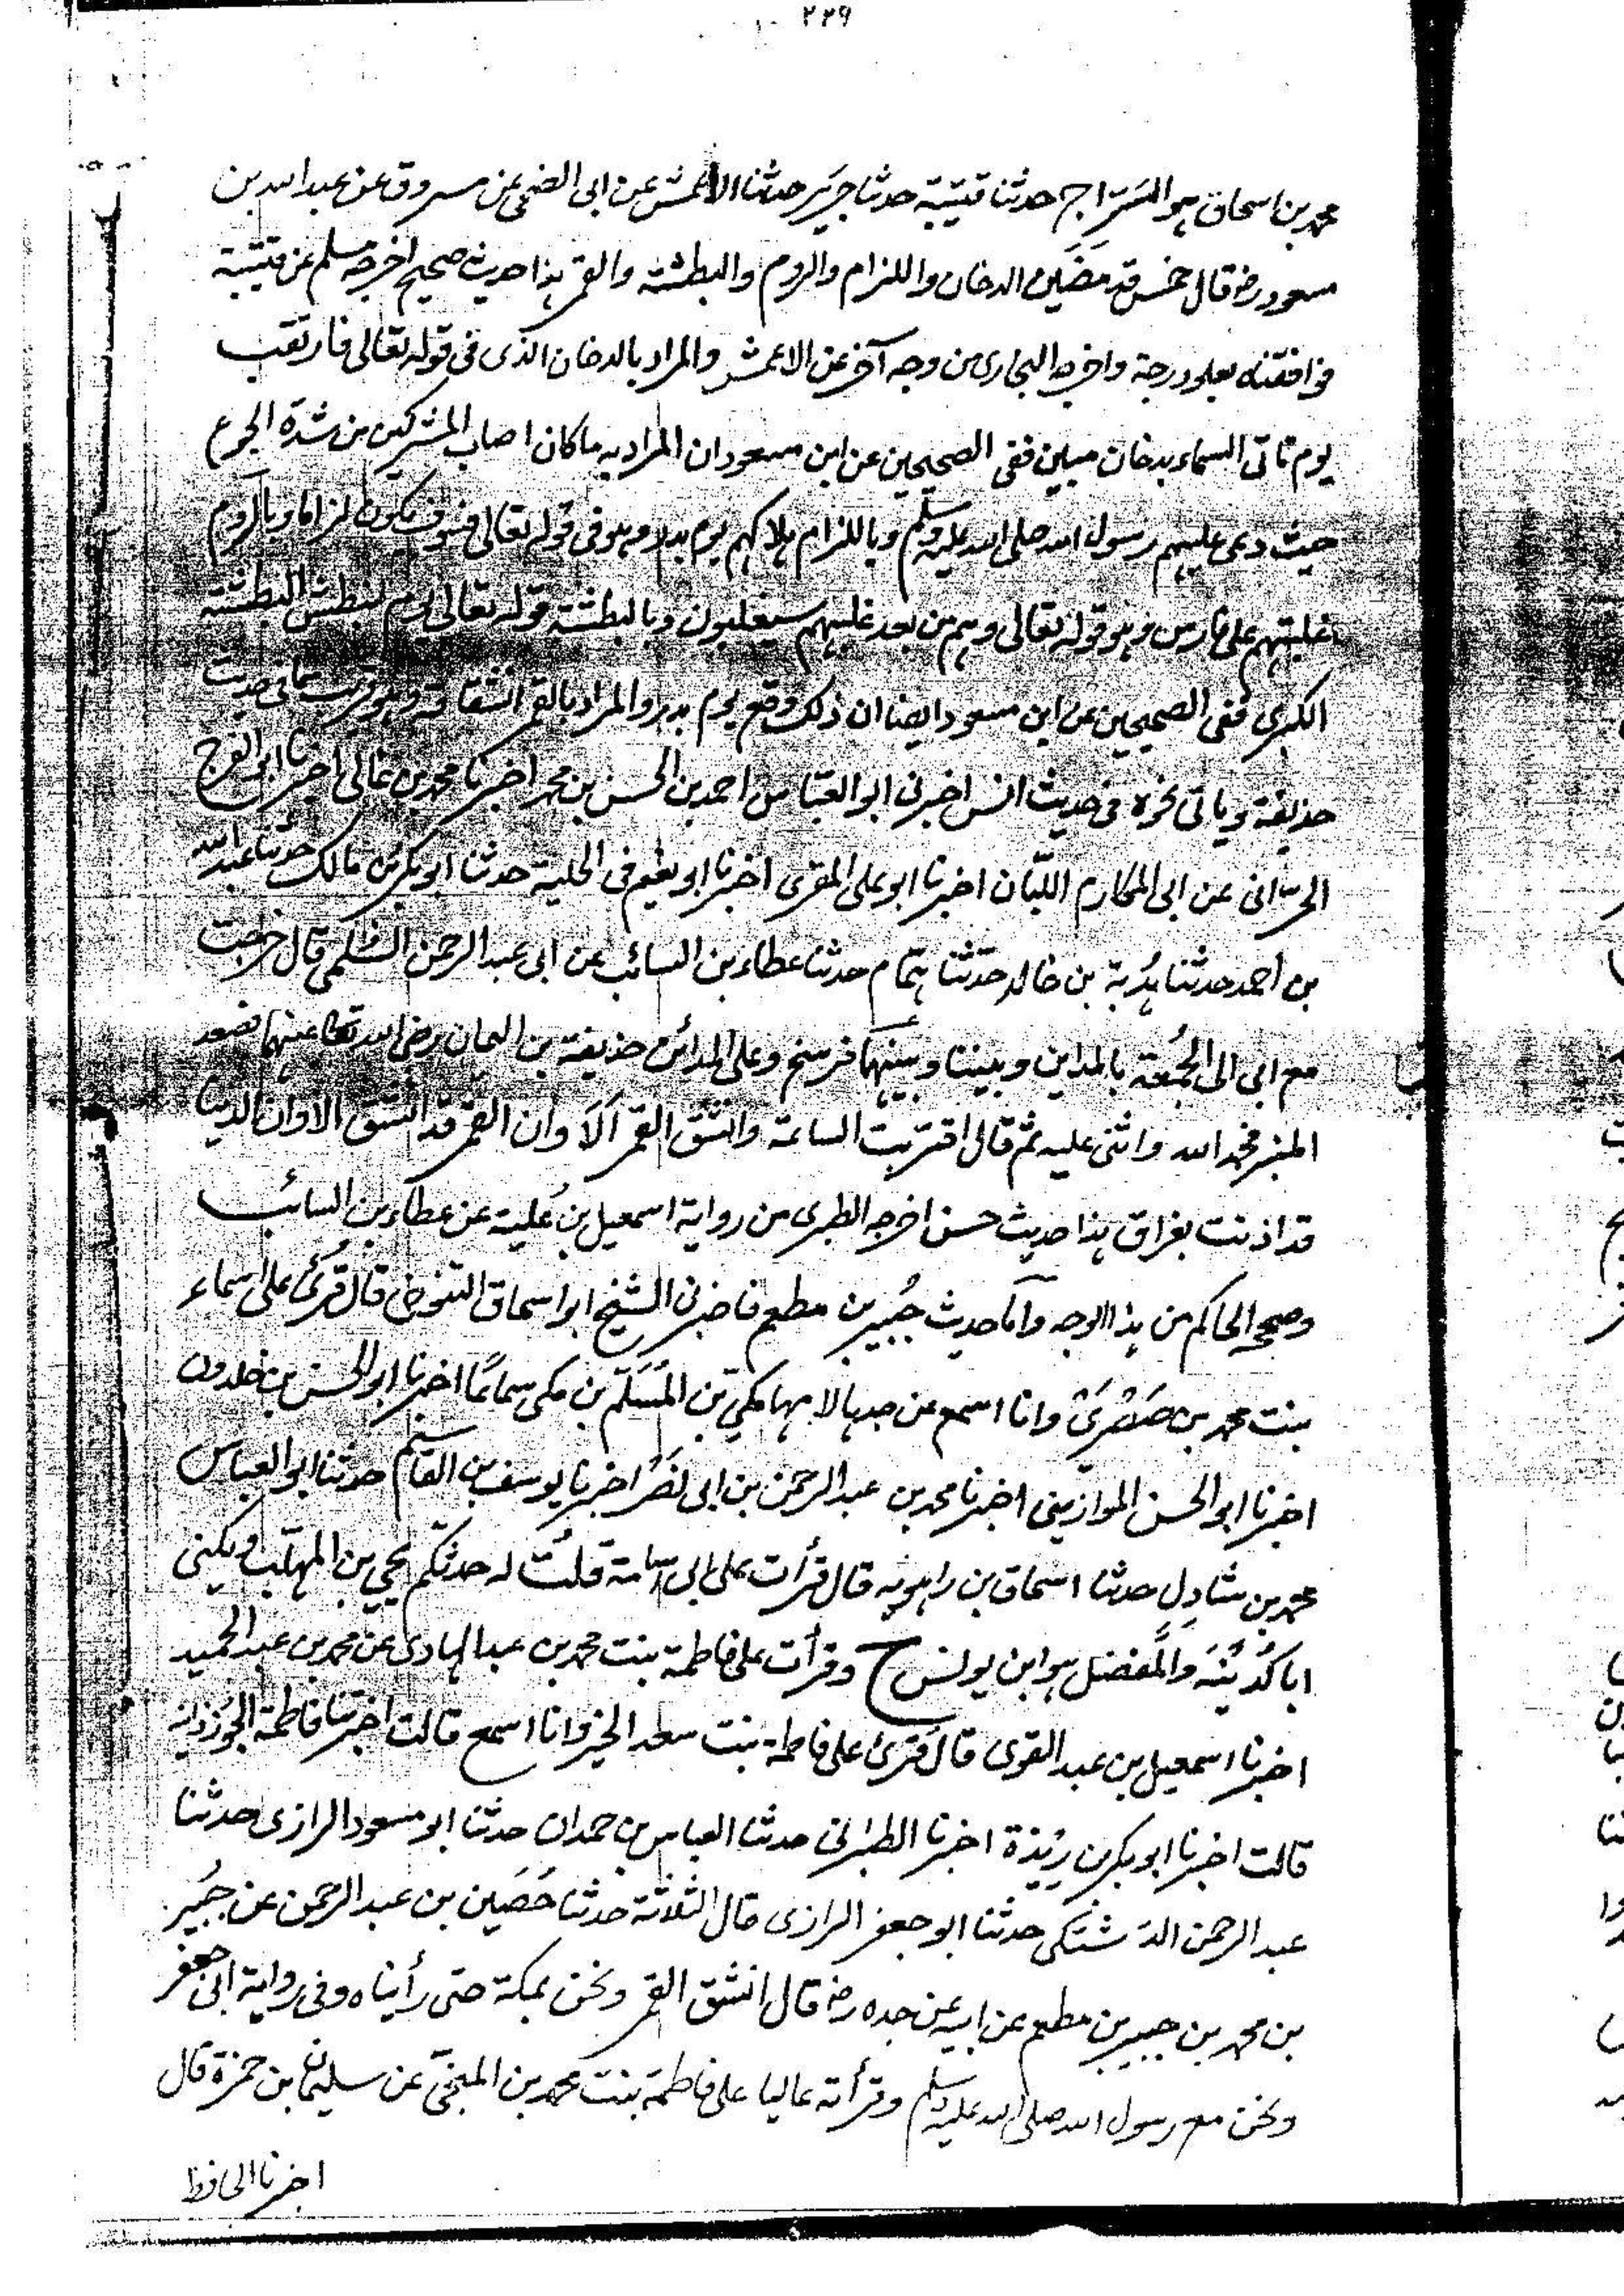 ٢٢٩
محمد بن اسحاق هو السَّرّاج حدثنا قتيبة حدثنا جرير حدثنا الاعمش عن ابى الضحى عن مسروق عن عبد الله بن
مسعود رض قال خمس قد مضَين الدخان واللزام والروم والبطشة والقمر هذا حديث صحيح اخرجه مسلم عن قتيبة
فوافقناه بعلو درجة واخرجه البخارى من وجه آخر عن الاعمش والمراد بالدخان الذى فى قوله تعالى فارتقب
يوم تاتى السماء بدخان مبين ففى الصحيحين عن ابن مسعود ان المراد به ما كان اصاب المشركين من شدة الجوع
حيث دعى عليهم رسول الله صلى الله عليه وسلم وباللزام هلاكهم يوم بدر وهو فى قوله تعالى فسوف يكون لزاما وبالروم
غلبتهم على فارس وهو قوله تعالى وهم من بعد غلبهم سيغلبون وبالبطشة قوله تعالى يوم نبطش البطشة
الكبرى ففى الصحيحين عن ابن مسعود ايضا ان ذلك وقع يوم بدر والمراد بالقمر انشقاقه وهو فى حديث
حذيفة وياتى نحوه فى حديث انس اخبرنى ابو العبّاس احمد بن الحسن بن محمد اخبرنا محمد بن غالى اخبرنا ابو الفرج
الحرّانى عن ابى المكارم اللبّان اخبرنا ابو على المقرى اخبرنا ابو نعيم فى الحلية حدثنا ابو بكر بن مالك حدثنا عبد الله
بن أحمد حدثنا هُدْبة بن خالد حدّثنا همّام حدثنا عطاء بن السائب عن ابى عبد الرحمن السُّلمى قال خرجت
مع ابى الى الجُمُعة بالمداين وبيننا وبينهما فرسخ وعلى المدائن حذيفة بن اليمان رضى الله تعالى عنهما فصعد
المنبر فحمد الله واثنى عليه ثم قال اقتربت الساعة وانشق القمر اَلَا وان القمر قد انشق الا وان الدنيا
قد اذنت بفراق هذا حديث حسن اخرجه الطبرى من رواية اسمعيل بن عُلية عن عطاء بن السائب
وصححه الحاكم من هذا الوجه وأمّا حديث جُبير بن مطعم فاخبرنى الشيخ ابو اسحاق التنوخى قال قُرئ على اسماء
بنت محمد بن صَصْرىٰ وانا اسمع عن جدها لامها مكى بن المُسَلّم بن مكى سماعًا اخبرنا ابو الحسن بن خلدون
اخبرنا ابو الحسن الموازينى اخبرنا محمد بن عبد الرحمن بن ابى نصر اخبرنا يوسف بن القاسم حدثنا ابو العباس
محمد بن شادِل حدثنا اسحاق بن راهويه قال قرأت على ابى اسامة قلت له حدثكم يحيى بن المهلّب ويكنى
ابا كُدَيْنَة والمُفضل هو ابن يونس ح وقرأت على فاطمة بنت محمد بن عبد الهادى عن محمد بن عبد الحميد
اخبرنا اسمعيل بن عبد القوى قال قُرئ على فاطمة بنت سعد الخير وانا اسمع قالت اخبرتنا فاطمة الجُوزدانية
قالت اخبرنا ابو بكر بن رِيْذة اخبرنا الطبرانى حدثنا العباس بن حمدان حدثنا ابو مسعود الرازى حدثنا
عبد الرحمن الدَشتكى حدثنا ابو جعفر الرازى قال الثلاثة حدثنا حُصَين بن عبد الرحمن عن جُبير
بن محمد بن جبير بن مطعم عن ابيه عن جده رض قال انشق القمر ونحن بمكة حتى رأيناه وفى رواية ابى جعفر
ونحن مع رسول الله صلى الله عليه وسلم وقرأته عاليا على فاطمة بنت محمد بن المنجّى عن سليمان بن حمزة قال
اخبرنا الحافظ